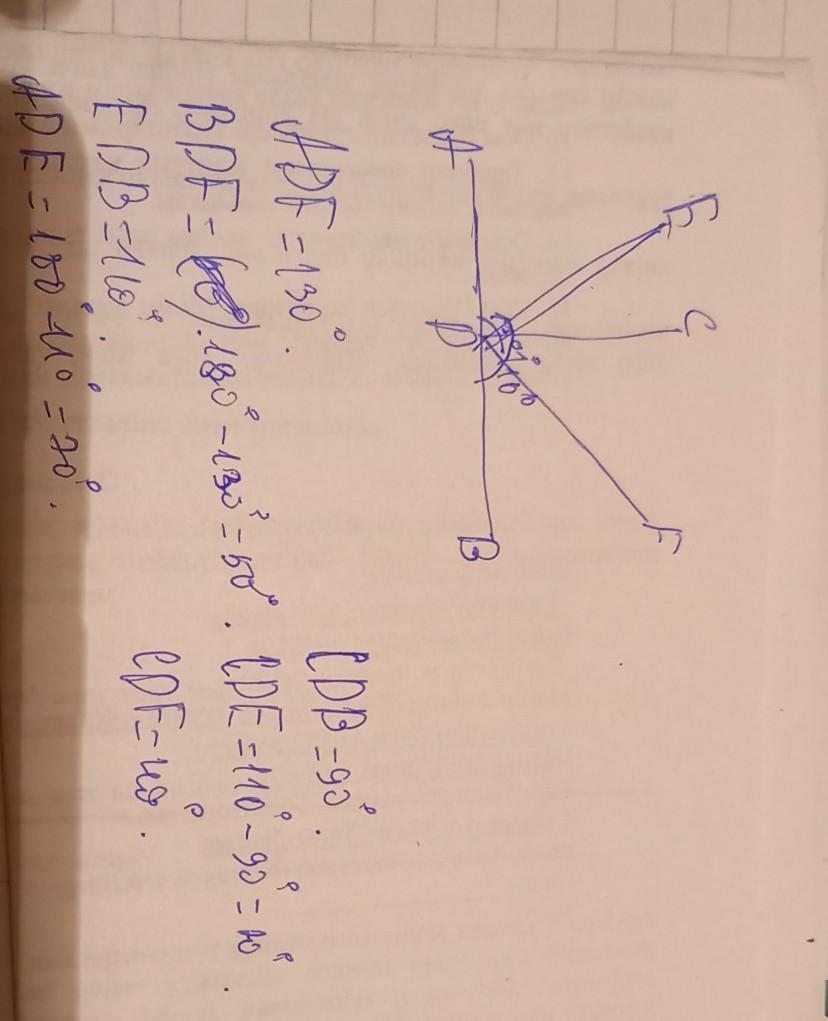 A
E
C
F
D
B
ADF = 130°.
BDF = 180° - 130° = 50°.
EDB = 110°.
ADE = 180° - 110° = 70°.
CDB = 90°.
CDE = 110° - 90° = 20°.
CDF = 40°.